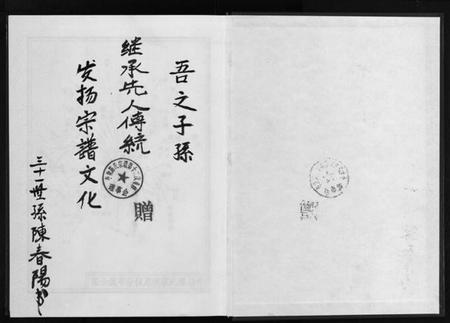 吾之子孫
继承先人傳統
发扬宗譜文化
三十一世孫陳春陽书
贈